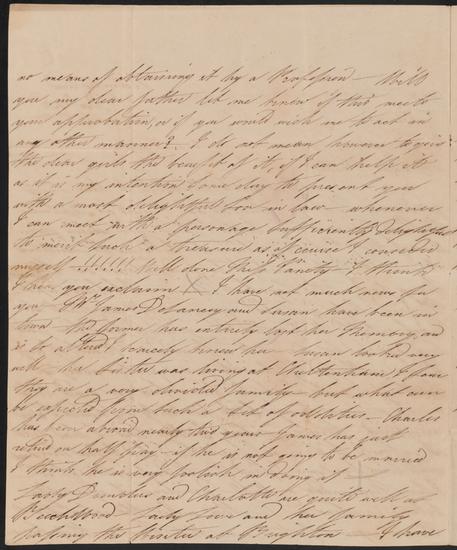 no means of obtaining it by a Profession — Will
you my dear father let me know if this meets
your approbation, or if you would wish me to act in
any other manner? I do not mean however to give
the dear girls the benefit of it, if I can help it
as it is my intention some day to present you
with a most delightful Son in law — whenever
I can meet with a personage sufficiently delightful
to merit such a treasure as of course I consider
myself —!!!!!! Well done Miss Vanity — I think
I hear you exclaim — I have not much news for
you Mrs James DeLancey and Susan have been in
town the former has entirely lost her Memory, and
is so altered I scarcely knew her Susan looked very
well her Sister was living at Cheltenham I fear
they are a very divided family — but what can
be expected from such a set of — Charles
has been abroad nearly two years James has just
retired on half pay — if he is not going to be married
I think he is very foolish in doing it
Lady and Charlotte are quite well at
Beechwood Lady and her family
passing the winter at Brighton — I have